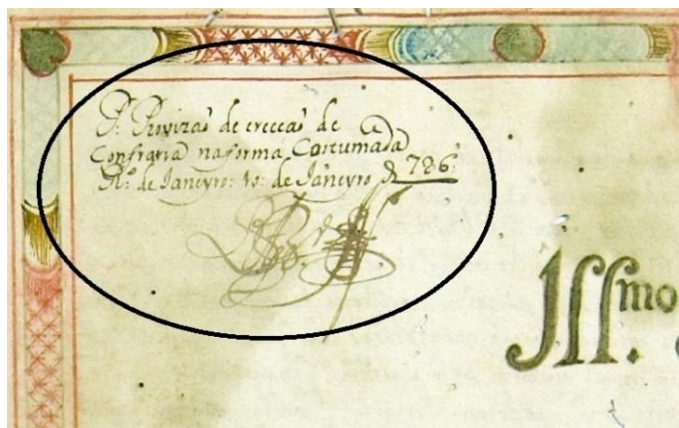 P. Provizaõ de erecçaõ de
Confraria na forma Costumada
Rº. de Janeyro: 10: de Janeyro de 726.
Jllmo.